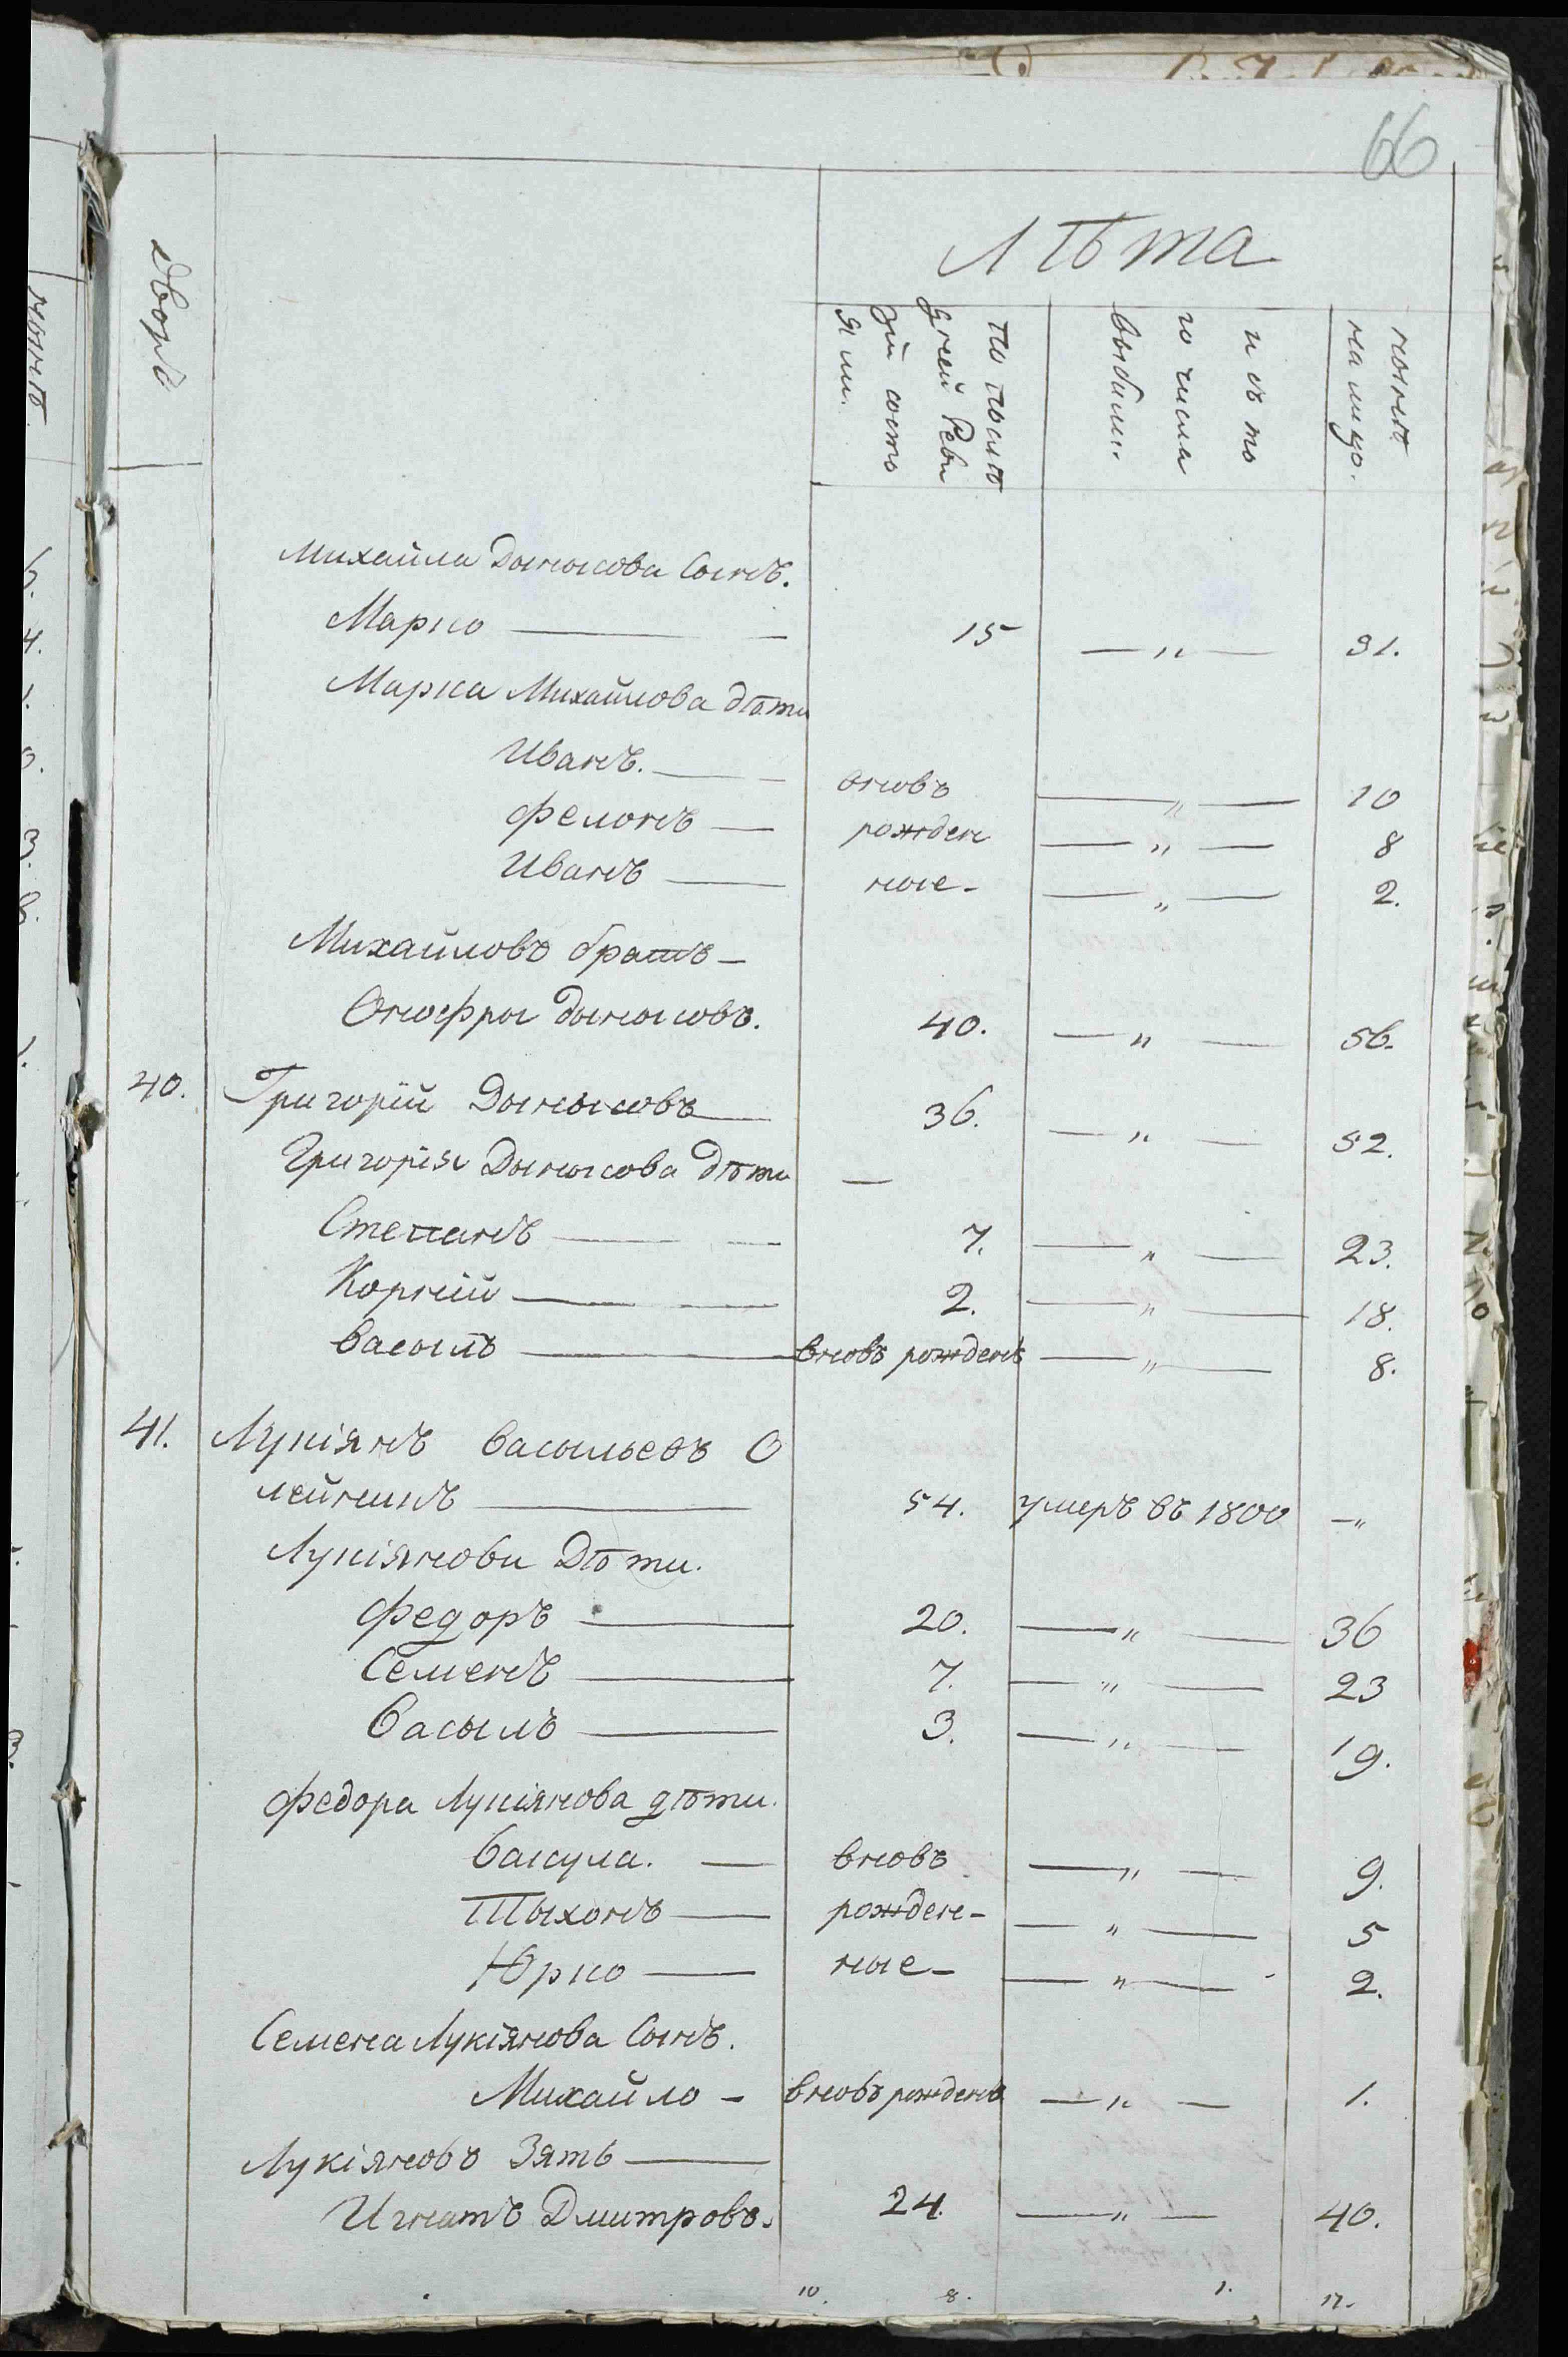 66
Лѣта
дворъ
по послѣ
дней Реви
зіи состо
яли.
изъ то
го числа
выбыли.
нынѣ
на лицо.
Михайла Дынысова Сынъ.
Марко 15 — „ — 31.
Марка Михайлова дѣти
Иванъ. вновь — „ — 10
Фелонъ рожден — „ — 8
Иванъ ные — „ — 2.
Михайловъ братъ
Онофры дынысовъ. 40. — „ — 56.
40. Григорій Дынысовъ 36. — „ — 52.
Григорія Дынысова дѣти —
Степанъ 7. — „ — 23.
Корній 2. — „ — 18.
Васылъ вновь рожденъ — „ — 8.
41. Лукіянъ Васыльевъ О
лейникъ 54. умеръ въ 1800 — „
Лукіянови Дѣти.
Федоръ 20. — „ — 36
Семенъ 7. — „ — 23
Васылъ 3. — „ — 19.
Федора Лукіянова дѣти.
Вакула. вновь — „ — 9.
Тыхонъ рожден- — „ — 5
Юрко ные — „ — 2.
Семена Лукіянова Сынъ.
Михайло вновь рожденъ — „ — 1.
Лукіяновъ Зять
Игнатъ Дмитровъ. 24. — „ — 40.
10. 8. 1. 17.